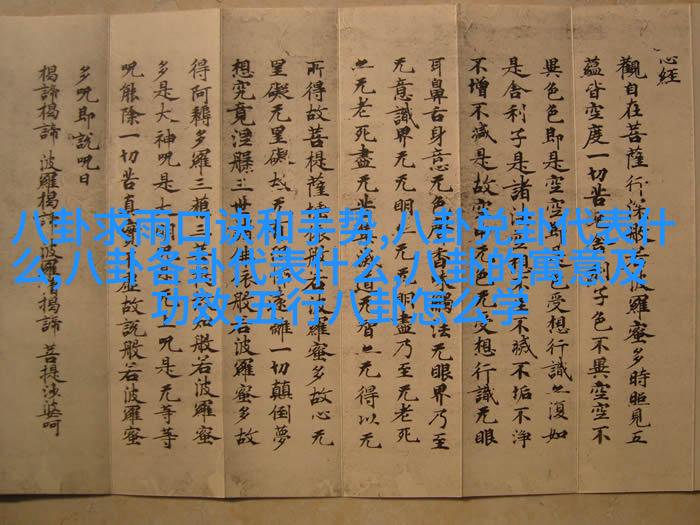 八卦求雨口诀和手势,八卦兑卦代表什
么,八卦各卦代表什么,八卦的寓意及
功效,五行八卦怎么学
心经
觀自在菩薩行深般若波羅蜜多時照見五
蘊皆空度一切苦厄舍利子色不異空空不
異色色即是空空即是色受想行識亦復如
是舍利子是諸法空相不生不滅不垢不淨
不增不減是故空中无色无受想行識无眼
耳鼻舌身意无色聲香味觸法无眼界乃至
无意識界无无明亦无无明盡乃至无老死
亦无老死盡无苦集滅道无智亦无得以无
所得故菩提薩埵依般若波羅蜜多故心无
罣礙无罣礙故无有恐怖遠離一切顛倒夢
想究竟涅槃三世諸佛依般若波羅蜜多故
得阿耨多羅三藐三菩提故知般若波羅蜜
多是大神呪是大明呪是无上呪是无等等
呪能除一切苦真實不虛故說般若波羅蜜
多呪即說呪曰
揭諦揭諦 波羅揭諦 波羅僧揭諦 菩提娑婆呵